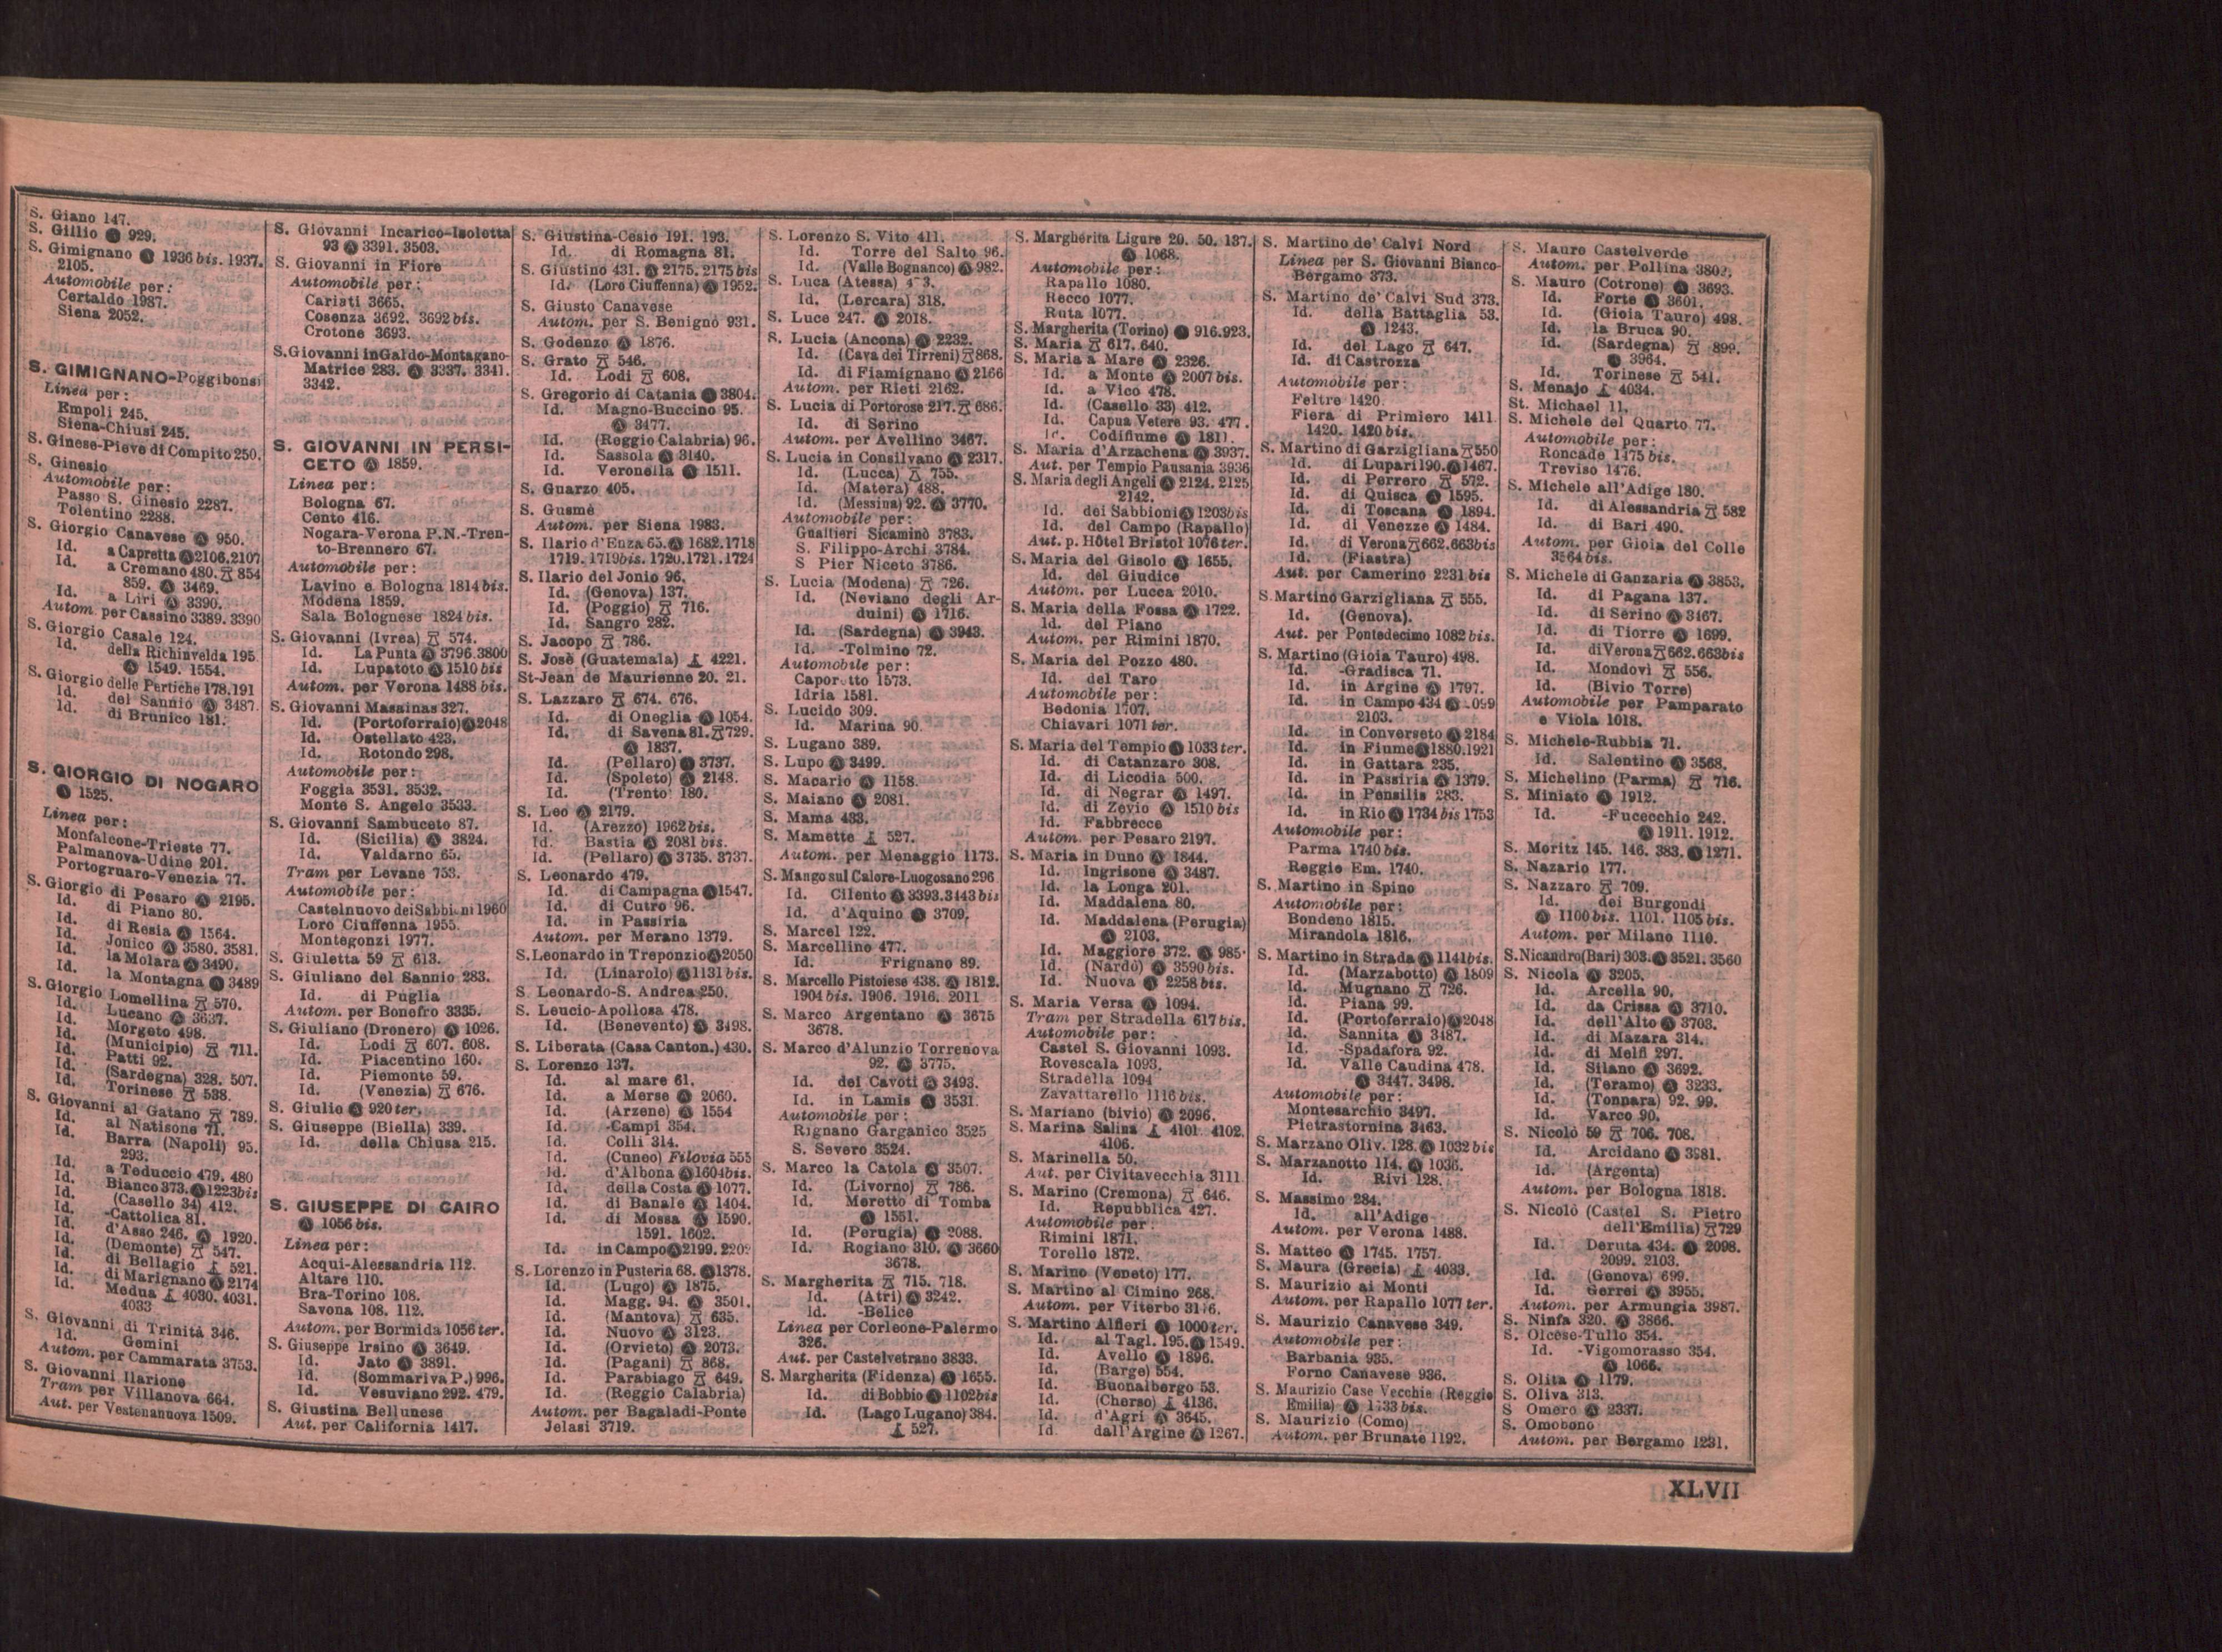 S. Giano 147.
S. Gillio Ⓐ 929.
S. Gimignano Ⓐ 1936 bis. 1937.
2105.
Automobile per:
Certaldo 1987.
Siena 2052.
S. GIMIGNANO-Poggibonsi
Linea per:
Empoli 245.
Siena-Chiusi 245.
S. Ginese-Pieve di Compito 250.
S. Ginesio
Automobile per:
Passo S. Ginesio 2287.
Tolentino 2288.
S. Giorgio Canavese Ⓐ 950.
Id. a Capretta Ⓐ 2106.2107
Id. a Cremano 480. 854
859. Ⓐ 3469.
Id. a Liri Ⓐ 3390.
Autom. per Cassino 3389. 3390
S. Giorgio Casale 124.
Id. della Richinvelda 195
Ⓐ 1549. 1554.
S. Giorgio delle Pertiche 178.191
Id. del Sannio Ⓐ 3487.
Id. di Brunico 181.
S. GIORGIO DI NOGARO
Ⓐ 1525.
Linea per:
Monfalcone-Trieste 77.
Palmanova-Udine 201.
Portogruaro-Venezia 77.
S. Giorgio di Pesaro Ⓐ 2195.
Id. di Piano 80.
Id. di Resia Ⓐ 1564.
Id. Jonico Ⓐ 3580. 3581.
Id. la Molara Ⓐ 3490.
Id. la Montagna Ⓐ 3489
S. Giorgio Lomellina 570.
Id. Lucano Ⓐ 3637.
Id. Morgeto 498.
Id. (Municipio) 711.
Id. Patti 92.
Id. (Sardegna) 328. 507.
Id. Torinese 538.
S. Giovanni al Gatano 789.
Id. al Natisone 71.
Id. Barra (Napoli) 95.
293.
Id. a Teduccio 479. 480
Id. Bianco 373. Ⓐ 1223bis
Id. (Casello 34) 412.
Id. -Cattolica 81.
Id. d'Asso 246. Ⓐ 1920.
Id. (Demonte) 547.
Id. di Bellagio 521.
Id. di Marignano Ⓐ 2174
Id. Medua 4030. 4031.
4033
S. Giovanni di Trinità 346.
Id. Gemini
Autom. per Cammarata 3753.
S. Giovanni Ilarione
Tram per Villanova 664.
Aut. per Vestenanuova 1509.
S. Giovanni Incarico-Isoletta
93 Ⓐ 3391. 3503.
S. Giovanni in Fiore
Automobile per:
Cariati 3665.
Cosenza 3692. 3692 bis.
Crotone 3693.
S. Giovanni in Galdo-Montagano-
Matrice 283. Ⓐ 3337. 3341.
3342.
S. GIOVANNI IN PERSI-
CETO Ⓐ 1859.
Linea per:
Bologna 67.
Cento 416.
Nogara-Verona P.N.-Tren-
to-Brennero 67.
Automobile per:
Lavino e Bologna 1814 bis.
Modena 1859.
Sala Bolognese 1824 bis.
S. Giovanni (Ivrea) 574.
Id. La Punta Ⓐ 3796.3800
Id. Lupatoto Ⓐ 1510 bis
Autom. per Verona 1488 bis.
S. Giovanni Massainas 327.
Id. (Portoferraio) Ⓐ 2048
Id. Ostellato 423.
Id. Rotondo 298.
Automobile per:
Foggia 3531. 3532.
Monte S. Angelo 3533.
S. Giovanni Sambuceto 87.
Id. (Sicilia) Ⓐ 3824.
Id. Valdarno 65.
Tram per Levane 753.
Automobile per:
Castelnuovo dei Sabbioni 1960
Loro Ciuffenna 1955.
Montegonzi 1977.
S. Giuletta 59 613.
S. Giuliano del Sannio 283.
Id. di Puglia
Autom. per Bonefro 3335.
S. Giuliano (Dronero) Ⓐ 1026.
Id. Lodi 607. 608.
Id. Piacentino 160.
Id. Piemonte 59.
Id. (Venezia) 676.
S. Giulio Ⓐ 920 ter.
S. Giuseppe (Biella) 339.
Id. della Chiusa 215.
S. GIUSEPPE DI CAIRO
Ⓐ 1056 bis.
Linea per:
Acqui-Alessandria 112.
Altare 110.
Bra-Torino 108.
Savona 108. 112.
Autom. per Bormida 1056 ter.
S. Giuseppe Irsino Ⓐ 3649.
Id. Jato Ⓐ 3891.
Id. (Sommariva P.) 996.
Id. Vesuviano 292. 479.
S. Giustina Bellunese
Aut. per California 1417.
S. Giustina-Cesio 191. 193.
Id. di Romagna 81.
S. Giustino 431. Ⓐ 2175. 2175 bis
Id. (Loro Ciuffenna) Ⓐ 1952.
S. Giusto Canavese
Autom. per S. Benigno 931.
S. Godenzo Ⓐ 1876.
S. Grato 546.
Id. Lodi 608.
S. Gregorio di Catania Ⓐ 3804.
Id. Magno-Buccino 95.
Ⓐ 3477.
Id. (Reggio Calabria) 96.
Id. Sassola Ⓐ 3140.
Id. Veronella Ⓐ 1511.
S. Guarzo 405.
S. Gusmè
Autom. per Siena 1983.
S. Ilario d'Enza 65. Ⓐ 1682.1718
1719. 1719bis. 1720.1721.1724
S. Ilario del Jonio 96.
Id. (Genova) 137.
Id. (Poggio) 716.
Id. Sangro 282.
S. Jacopo 786.
S. Josè (Guatemala) 4221.
St-Jean de Maurienne 20. 21.
S. Lazzaro 674. 676.
Id. di Oneglia Ⓐ 1054.
Id. di Savena 81. 729.
Ⓐ 1837.
Id. (Pellaro) Ⓐ 3737.
Id. (Spoleto) Ⓐ 2148.
Id. (Trento) 180.
S. Leo Ⓐ 2179.
Id. (Arezzo) 1962 bis.
Id. Bastia Ⓐ 2081 bis.
Id. (Pellaro) Ⓐ 3735. 3737.
S. Leonardo 479.
Id. di Campagna Ⓐ 1547.
Id. di Cutro 96.
Id. in Passiria
Autom. per Merano 1379.
S. Leonardo in Treponzio Ⓐ 2050
Id. (Linarolo) Ⓐ 1131 bis.
S Leonardo-S. Andrea 250.
S. Leucio-Apollosa 478.
Id. (Benevento) Ⓐ 3498.
S. Liberata (Casa Canton.) 430.
S. Lorenzo 137.
Id. al mare 61.
Id. a Merse Ⓐ 2060.
Id. (Arzene) Ⓐ 1554
Id. -Campi 354.
Id. Colli 314.
Id. (Cuneo) Filovia 555
Id. d'Albona Ⓐ 1604bis.
Id. della Costa Ⓐ 1077.
Id. di Banale Ⓐ 1404.
Id. di Mossa Ⓐ 1590.
1591. 1602.
Id. in Campo Ⓐ 2199.
S. Lorenzo in Pusteria 68. Ⓐ 1378.
Id. (Lugo) Ⓐ 1875.
Id. Magg. 94. Ⓐ 3501.
Id. (Mantova) 635.
Id. Nuovo Ⓐ 3123.
Id. (Orvieto) Ⓐ 2073.
Id. (Pagani) 868.
Id. Parabiago 649.
Id. (Reggio Calabria)
Autom. per Bagaladi-Ponte
Jelasi 3719.
S. Lorenzo S. Vito 411.
Id. Torre del Salto 96.
Id. (Valle Bognanco) Ⓐ 982.
S. Luca (Atessa)
Id. (Lercara) 318.
S. Luce 247. Ⓐ 2018.
S. Lucia (Ancona) Ⓐ 2232.
Id. (Cava dei Tirreni) 868.
Id. di Fiamignano Ⓐ 2166
Autom. per Rieti 2162.
S. Lucia di Portorose 217. 686.
Id. di Serino
Autom. per Avellino 3467.
S. Lucia in Consilvano Ⓐ 2317.
Id. (Lucca) 755.
Id. (Matera) 488.
Id. (Messina) 92. Ⓐ 3770.
Automobile per:
Gualtieri Sicaminò 3783.
S. Filippo-Archi 3784.
S Pier Niceto 3786.
S. Lucia (Modena) 726.
Id. (Neviano degli Ar-
duini) Ⓐ 1716.
Id. (Sardegna) Ⓐ 3943.
Id. -Tolmino 72.
Automobile per:
Caporetto 1573.
Idria 1581.
S. Lucido 309.
Id. Marina 90.
S. Lugano 389.
S. Lupo Ⓐ 3499.
S. Macario Ⓐ 1158.
S. Maiano Ⓐ 2081.
S. Mama 433.
S. Mamette 527.
Autom. per Menaggio 1173.
S. Mango sul Calore-Luogosano 296
Id. Cilento Ⓐ 3393.3443 bis
Id. d'Aquino Ⓐ 3709.
S. Marcel 122.
S. Marcellino 477.
Id. Frignano 89.
S. Marcello Pistoiese 438. Ⓐ 1812.
1904 bis. 1906. 1916. 2011
S. Marco Argentano Ⓐ 3675
3678.
S. Marco d'Alunzio Torrenova
92. Ⓐ 3775.
Id. dei Cavoti Ⓐ 3493.
Id. in Lamis Ⓐ 3531.
Automobile per:
Rignano Garganico 3525
S. Severo 3524.
S. Marco la Catola Ⓐ 3507.
Id. (Livorno) 786.
Id. Meretto di Tomba
Ⓐ 1551.
Id. (Perugia) Ⓐ 2088.
Id. Rogiano 310. Ⓐ 3660
3678.
S. Margherita 715. 718.
Id. (Atri) Ⓐ 3242.
Id. -Belice
Linea per Corleone-Palermo
326.
Aut. per Castelvetrano 3833.
S. Margherita (Fidenza) Ⓐ 1655.
Id. di Bobbio Ⓐ 1102bis
Id. (Lago Lugano) 384.
527.
S. Margherita Ligure 20. 50. 137.
Ⓐ 1068.
Automobile per:
Rapallo 1080.
Recco 1077.
Ruta 1077.
S. Margherita (Torino) Ⓐ 916.923.
S. Maria 617. 640.
S. Maria a Mare Ⓐ 2326.
Id. a Monte Ⓐ 2007 bis.
Id. a Vico 478.
Id. (Casello 33) 412.
Id. Capua Vetere 93. 477.
Id. Codifiume Ⓐ 1811.
S. Maria d'Arzachena Ⓐ 3937.
Aut. per Tempio Pausania 3936
S. Maria degli Angeli Ⓐ 2124. 2125
2142.
Id. dei Sabbioni Ⓐ 1203bis
Id. del Campo (Rapallo)
Aut. p. Hôtel Bristol 1076 ter.
S. Maria del Gisolo Ⓐ 1655.
Id. del Giudice
Autom. per Lucca 2010.
S. Maria della Fossa Ⓐ 1722.
Id. del Piano
Autom. per Rimini 1870.
S. Maria del Pozzo 480.
Id. del Taro
Automobile per:
Bedonia 1707.
Chiavari 1071 ter.
S. Maria del Tempio Ⓐ 1033 ter.
Id. di Catanzaro 308.
Id. di Licodia 500.
Id. di Negrar Ⓐ 1497.
Id. di Zevio Ⓐ 1510 bis
Id. Fabbrecce
Autom. per Pesaro 2197.
S. Maria in Duno Ⓐ 1844.
Id. Ingrisone Ⓐ 3487.
Id. la Longa 201.
Id. Maddalena 80.
Id. Maddalena (Perugia)
Ⓐ 2103.
Id. Maggiore 372. Ⓐ 985.
Id. (Nardò) Ⓐ 3590 bis.
Id. Nuova Ⓐ 2258 bis.
S. Maria Versa Ⓐ 1094.
Tram per Stradella 617 bis.
Automobile per:
Castel S. Giovanni 1093.
Rovescala 1093.
Stradella 1094
Zavattarello 1116 bis.
S. Mariano (bivio) Ⓐ 2096.
S. Marina Salina 4101. 4102.
4106.
S. Marinella 50.
Aut. per Civitavecchia 3111
S. Marino (Cremona) 646.
Id. Repubblica 427.
Automobile per:
Rimini 1871.
Torello 1872.
S. Marino (Veneto) 177.
S. Martino al Cimino 268.
Autom. per Viterbo
S. Martino Alfieri Ⓐ 1000 ter.
Id. al Tagl. 195. Ⓐ 1549.
Id. Avello Ⓐ 1896.
Id. (Barge) 554.
Id. Buonalbergo 53.
Id. (Cherso) 4136.
Id. d'Agri Ⓐ 3645.
Id. dall'Argine Ⓐ 1267.
S. Martino de' Calvi Nord
Linea per S. Giovanni Bianco-
Bergamo 373.
S. Martino de' Calvi Sud 373.
Id. della Battaglia 53.
Ⓐ 1243.
Id. del Lago 647.
Id. di Castrozza
Automobile per:
Feltre 1420.
Fiera di Primiero 1411
1420. 1420 bis.
S. Martino di Garzigliana 550
Id. di Lupari 190. Ⓐ 1467.
Id. di Perrero 572.
Id. di Quisca Ⓐ 1595.
Id. di Toscana Ⓐ 1894.
Id. di Venezze Ⓐ 1484.
Id. di Verona 662.663bis
Id. (Fiastra)
Aut. per Camerino 2231 bis
S. Martino Garzigliana 555.
Id. (Genova).
Aut. per Pontedecimo 1082 bis.
S. Martino (Gioia Tauro) 498.
Id. -Gradisca 71.
Id. in Argine Ⓐ 1797.
Id. in Campo 434 Ⓐ
2103.
Id. in Converseto Ⓐ 2184
Id. in Fiume Ⓐ 1880.1921
Id. in Gattara 235.
Id. in Passiria Ⓐ 1379.
Id. in Pensilis 283.
Id. in Rio Ⓐ 1734 bis 1753
Automobile per:
Parma 1740 bis.
Reggio Em. 1740.
S. Martino in Spino
Automobile per:
Bondeno 1815.
Mirandola 1816.
S. Martino in Strada Ⓐ 1141bis.
Id. (Marzabotto) Ⓐ 1809
Id. Mugnano 726.
Id. Piana 99.
Id. (Portoferraio) Ⓐ 2048
Id. Sannita Ⓐ 3487.
Id. -Spadafora 92.
Id. Valle Caudina 478.
Ⓐ 3447. 3498.
Automobile per:
Montesarchio 3497.
Pietrastornina 3463.
S. Marzano Oliv. 128. Ⓐ 1032 bis
S. Marzanotto 114. Ⓐ 1036.
Id. Rivi 128.
S. Massimo 284.
Id. all'Adige
Autom. per Verona 1488.
S. Matteo Ⓐ 1745. 1757.
S. Maura (Grecia) 4033.
S. Maurizio ai Monti
Autom. per Rapallo 1077 ter.
S. Maurizio Canavese 349.
Automobile per:
Barbania 935.
Forno Canavese 936.
S. Maurizio Case Vecchie (Reggio
Emilia) Ⓐ 1733 bis.
S. Maurizio (Como)
Autom. per Brunate 1192.
S. Mauro Castelverde
Autom. per Pollina 3802.
S. Mauro (Cotrone) Ⓐ 3693.
Id. Forte Ⓐ 3601.
Id. (Gioia Tauro) 498.
Id. la Bruca 90.
Id. (Sardegna) 899.
Ⓐ 3964.
Id. Torinese 541.
S. Menaio 4034.
St. Michael 11.
S. Michele del Quarto 77.
Automobile per:
Roncade 1475 bis.
Treviso 1476.
S. Michele all'Adige 180.
Id. di Alessandria 582
Id. di Bari 490.
Autom. per Gioia del Colle
3564 bis.
S. Michele di Ganzaria Ⓐ 3853.
Id. di Pagana 137.
Id. di Serino Ⓐ 3467.
Id. di Tiorre Ⓐ 1699.
Id. di Verona 662.663bis
Id. Mondovì 556.
Id. (Bivio Torre)
Automobile per Pamparato
e Viola 1018.
S. Michele-Rubbia 71.
Id. Salentino Ⓐ 3568.
S. Michelino (Parma) 716.
S. Miniato Ⓐ 1912.
Id. -Fucecchio 242.
Ⓐ 1911. 1912.
S. Moritz 145. 146. 383. Ⓐ 1271.
S. Nazario 177.
S. Nazzaro 709.
Id. dei Burgondi
Ⓐ 1100 bis. 1101. 1105 bis.
Autom. per Milano 1110.
S. Nicandro (Bari) 303. Ⓐ 3521. 3560
S. Nicola Ⓐ 3205.
Id. Arcella 90.
Id. da Crissa Ⓐ 3710.
Id. dell'Alto Ⓐ 3703.
Id. di Mazara 314.
Id. di Melfi 297.
Id. Silano Ⓐ 3692.
Id. (Teramo) Ⓐ 3233.
Id. (Tonnara) 92. 99.
Id. Varco 90.
S. Nicolò 59 706. 708.
Id. Arcidano Ⓐ 3981.
Id. (Argenta)
Autom. per Bologna 1818.
S. Nicolò (Castel S. Pietro
dell'Emilia) 729
Id. Deruta 434. Ⓐ 2098.
2099. 2103.
Id. (Genova) 699.
Id. Gerrei Ⓐ 3955.
Autom. per Armungia 3987.
S. Ninfa 320. Ⓐ 3866.
S. Olcese-Tullo 354.
Id. -Vigomorasso 354.
Ⓐ 1066.
S. Olita Ⓐ 1179.
S. Oliva 313.
S Omero Ⓐ 2337.
S. Omobono
Autom. per Bergamo 1231.
XLVII